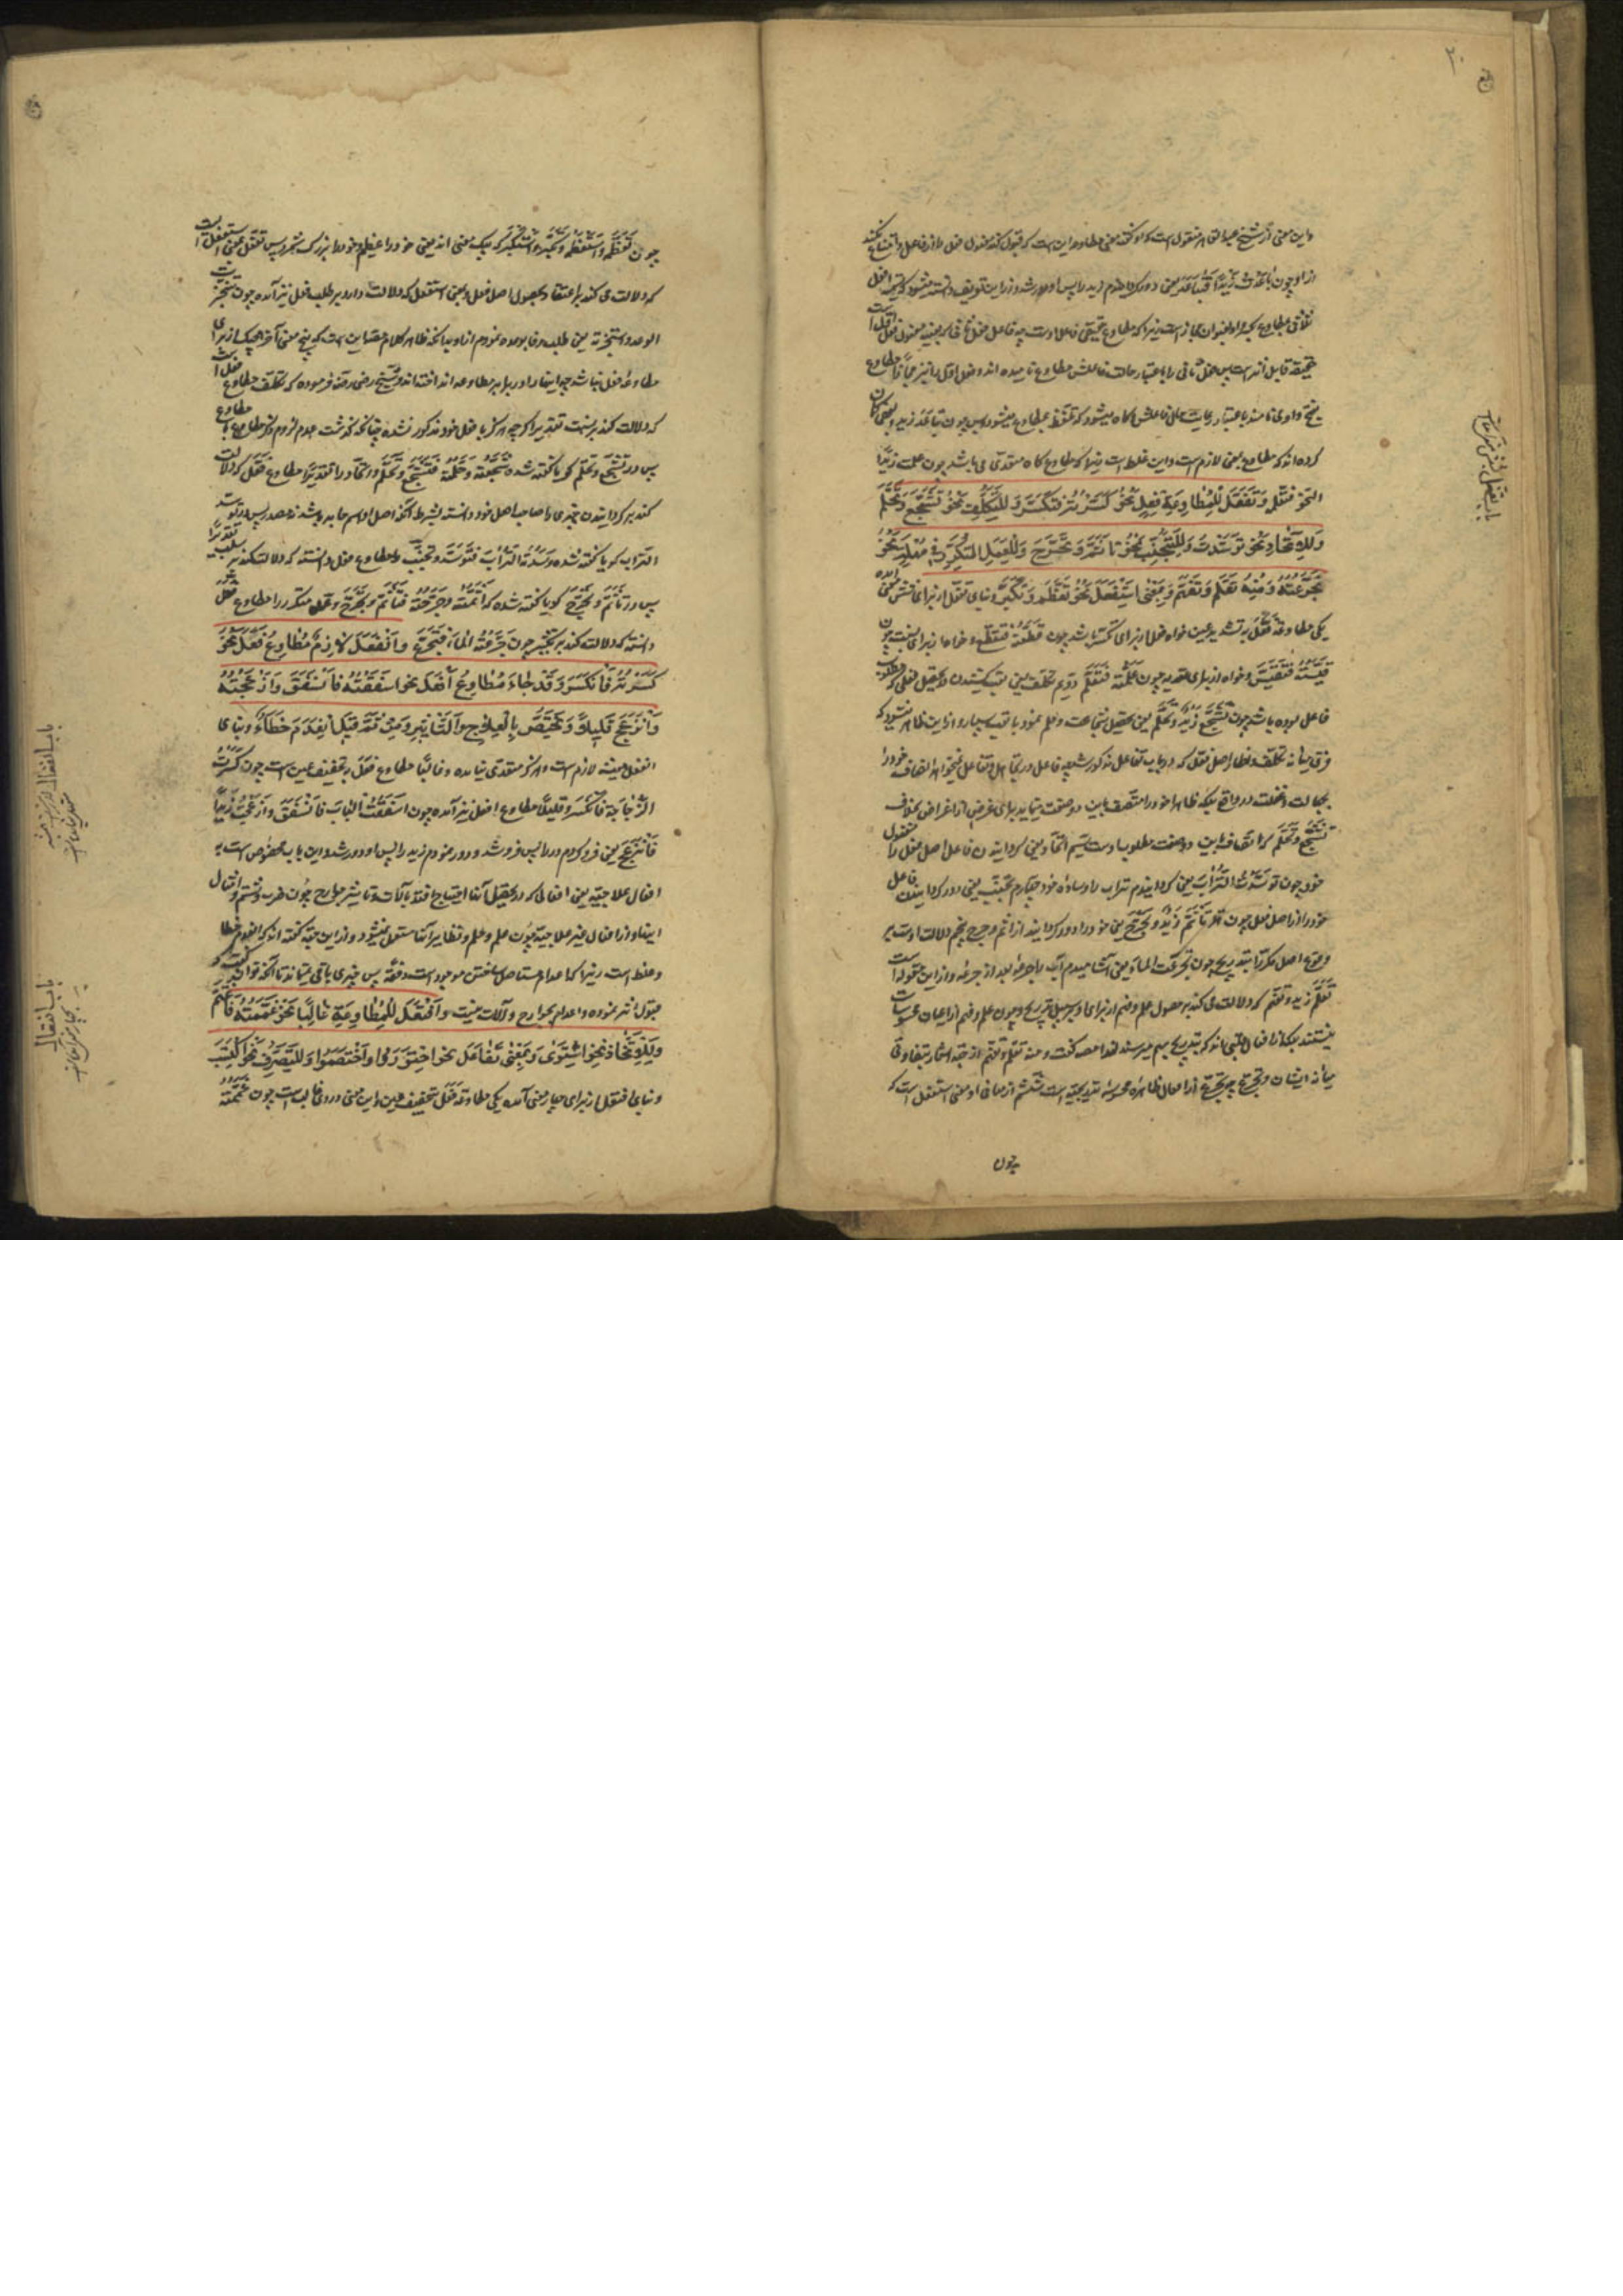 ۲۰
واین معنی از شیخ عبدالقاهر منقول است که او گفته معنی مطاوعه این است که قبول کند مفعول فعل را از فاعل و امتناع نکند
از او چون باعدت زیدا فتباعد یعنی دور کردم زید را پس او دور شد و از این تعریف دانسته میشود که همیشه فعل
حقیقة قابل اند است پس فعل ثانی را باعتبار حالت فاعلش مطاوع نامیده اند و فعل اول را نیز مجازا مطاوع
کرده اند که مطاوع بمعنی لازم است و این غلط است زیرا که مطاوع گاه متعدی می باشد چون علمت زیدا
النحو فتعلم وتفعل لمطاوعة فعل نحو كسرته فتكسر وللتكلف نحو تشجع وتحلم
وللاتخاذ نحو توسدت وللتجنب نحو تأثم وتحرج وللعمل المتكرر في مهلة نحو
تجرعته ومنه تعلم وتفهم وبمعنى استفعل نحو تعظم وتكبر و بنای تفعل از برای شش معنی آمده
یکی مطاوعة فعل به تشدید عین خواه فعل از برای تکثیر باشد چون قطعته فتقطع و خواه از برای نسبت چون
قیسته فتقیس و خواه از برای تعدیه چون علمته فتعلم دویم تکلف یعنی تعب کشیدن در تحصیل فعلی که مطلوب
فاعل بوده باشد چون تشجع زید وتحلم یعنی تحصیل شجاعت و حلم نمود با تعب بسیار و از این ظاهر میشود که
فرق میانه تکلف و تظاهر اصل فعل که در باب تفاعل مذکور شد چه فاعل در تجاهل و تغافل نمیخواهد اتصاف خود را
بجهالت و غفلت در واقع بلکه ظاهرا خود را متصف باین دو صفت مینماید برای غرض از اغراض بخلاف
تشجع وتحلم که اتصاف باین دو صفت مطلوب اوست سیم اتخاذ یعنی گردانیدن فاعل اصل فعل را مفعول
خود چون توسدت التراب یعنی گردانیدم تراب را وساده خود چهارم تجنب یعنی دور گردانیدن فاعل
خود را از اصل فعل چون تأثم زید وتحرج یعنی خود را دور گردانید از اثم و حرج پنجم دلالت اوست بر
وقوع اصل مکررا بتدریج چون تجرعت الماء یعنی آشامیدم آب را جرعه بعد از جرعه و از این مقوله است
تعلم زید وتفهم که دلالت می کند بر حصول علم و فهم از برای او بر سبیل تدریج و چون علم و فهم از اعیان محسوسات
نیستند بلکه از افعال قلبی اند که بتدریج بهم میرسند لهذا مصنف گفت و منه تعلم وتفهم از جهة اشعار بتفاوتی
میانه ایشان و تجرع چه تجرع از افعال ظاهره محسوسه تدریجیه است ششم از معانی او معنی استفعل است که
چون
چون تعظم واستعظم وتکبر واستکبر که بیک معنی اند یعنی خود را عظیم و خود را بزرگ شمرد پس تفعل بمعنی استفعل است
که دلالت می کند بر اعتقاد بحصول اصل فعل و بمعنی استفعل که دلالت دارد بر طلب فعل نیز آمده چون تنجز
الوعد واستنجزته یعنی طلب وفا بوعده نمودم از او بدانکه ظاهر کلام مصنف این است که پنج معنی آخر هیچیک از برای
مطاوعه فعل نباشد چه ایشان را در برابر مطاوعه انداخته اند و شیخ رضی رحمه فرموده که تکلف مطاوع فعل است
که دلالت کند بر نسبت تقدیرا اگرچه هرگز با فعل خود مذکور نشده چنانکه گذشت عدم لزوم ذکر مطاوع با مطاوع
پس در تشجع وتحلم گویا گفته شده شجعته وحلمته فتشجع وتحلم و اتخاذ را تقدیرا مطاوع فعل که دلالت
کند بر گردانیدن چیزی را صاحب اصل خود دانسته بشرط آنکه اصل او اسم جامد باشد نه مصدر پس در توسدت
التراب گویا گفته شده وسدته التراب فتوسده وتجنب را مطاوع فعل دانسته که دلالت کند بر سلب تقدیرا
پس در تأثم وتحرج گویا گفته شده که اثمته وحرجته فتأثم وتحرج و عمل متکرر را مطاوع فعل
دانسته که دلالت کند بر تکثیر چون جرعته الماء فتجرع وانفعل لازم مطاوع فعل نحو
كسرته فانكسر وقد جاء مطاوع أفعل نحو اسفقته فانسفق وازعجته
وانزعج قليلا ويختص بالعلاج والتأثير ومن ثمة قيل انعدم خطاء و بنای
انفعل همیشه لازم است و هرگز متعدی نیامده و غالبا مطاوع فعل بتخفیف عین است چون کسرت
الزجاجة فانکسر و قلیلا مطاوع افعل نیز آمده چون اسفقت الباب فانسفق وازعجت زیدا
فانزعج یعنی فرو کردم در را پس فرو شد و دور نمودم زید را پس او دور شد و این باب مخصوص است به
افعال علاجیه یعنی افعالی که در تحصیل آنها احتیاج افتد بآلات و تأثیر جوارح چون ضرب و شتم و امثال
اینها و از افعال غیر علاجیه چون علم و حلم و نظایر آنها مستعمل نمیشود و از این جهة گفته اند که انعدم خطا
و غلط است زیرا که اعدام مستأصل ساختن موجود است دفعة پس چیزی باقی نمیماند تا آنکه توان گفت که
قبول اثر نموده و اعدام بجوارح و آلات نیست وافتعل للمطاوعة غالبا نحو غممته فاغتم
وللاتخاذ نحو اشتوى وبمعنى تفاعل نحو اجتوروا واختصموا وللتصرف نحو اكتسب
و بنای افتعل از برای چهار معنی آمده یکی مطاوعة فعل بتخفیف عین و این معنی در وی غالب است چون غممته
باب انفعال
باب افتعال